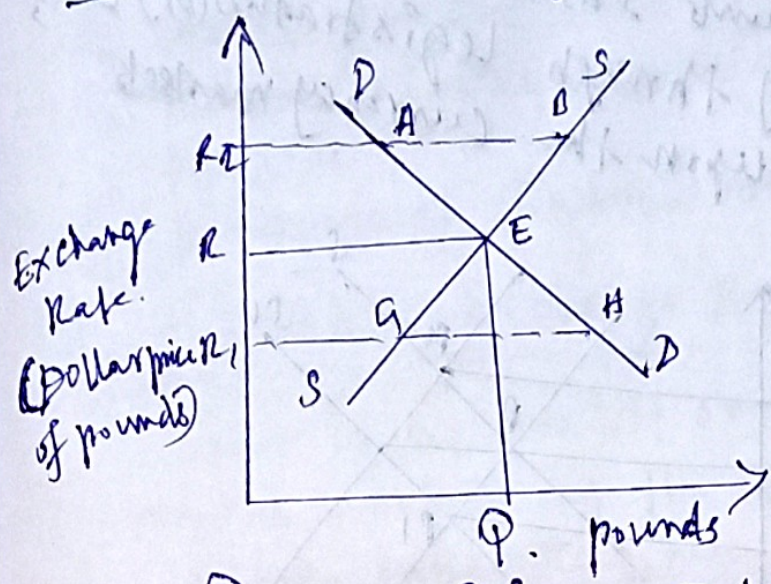 D
S
A
B
R2
Exchange
Rate.
R
E
(Dollar price R1
of pounds)
G
H
S
D
Q.
pounds